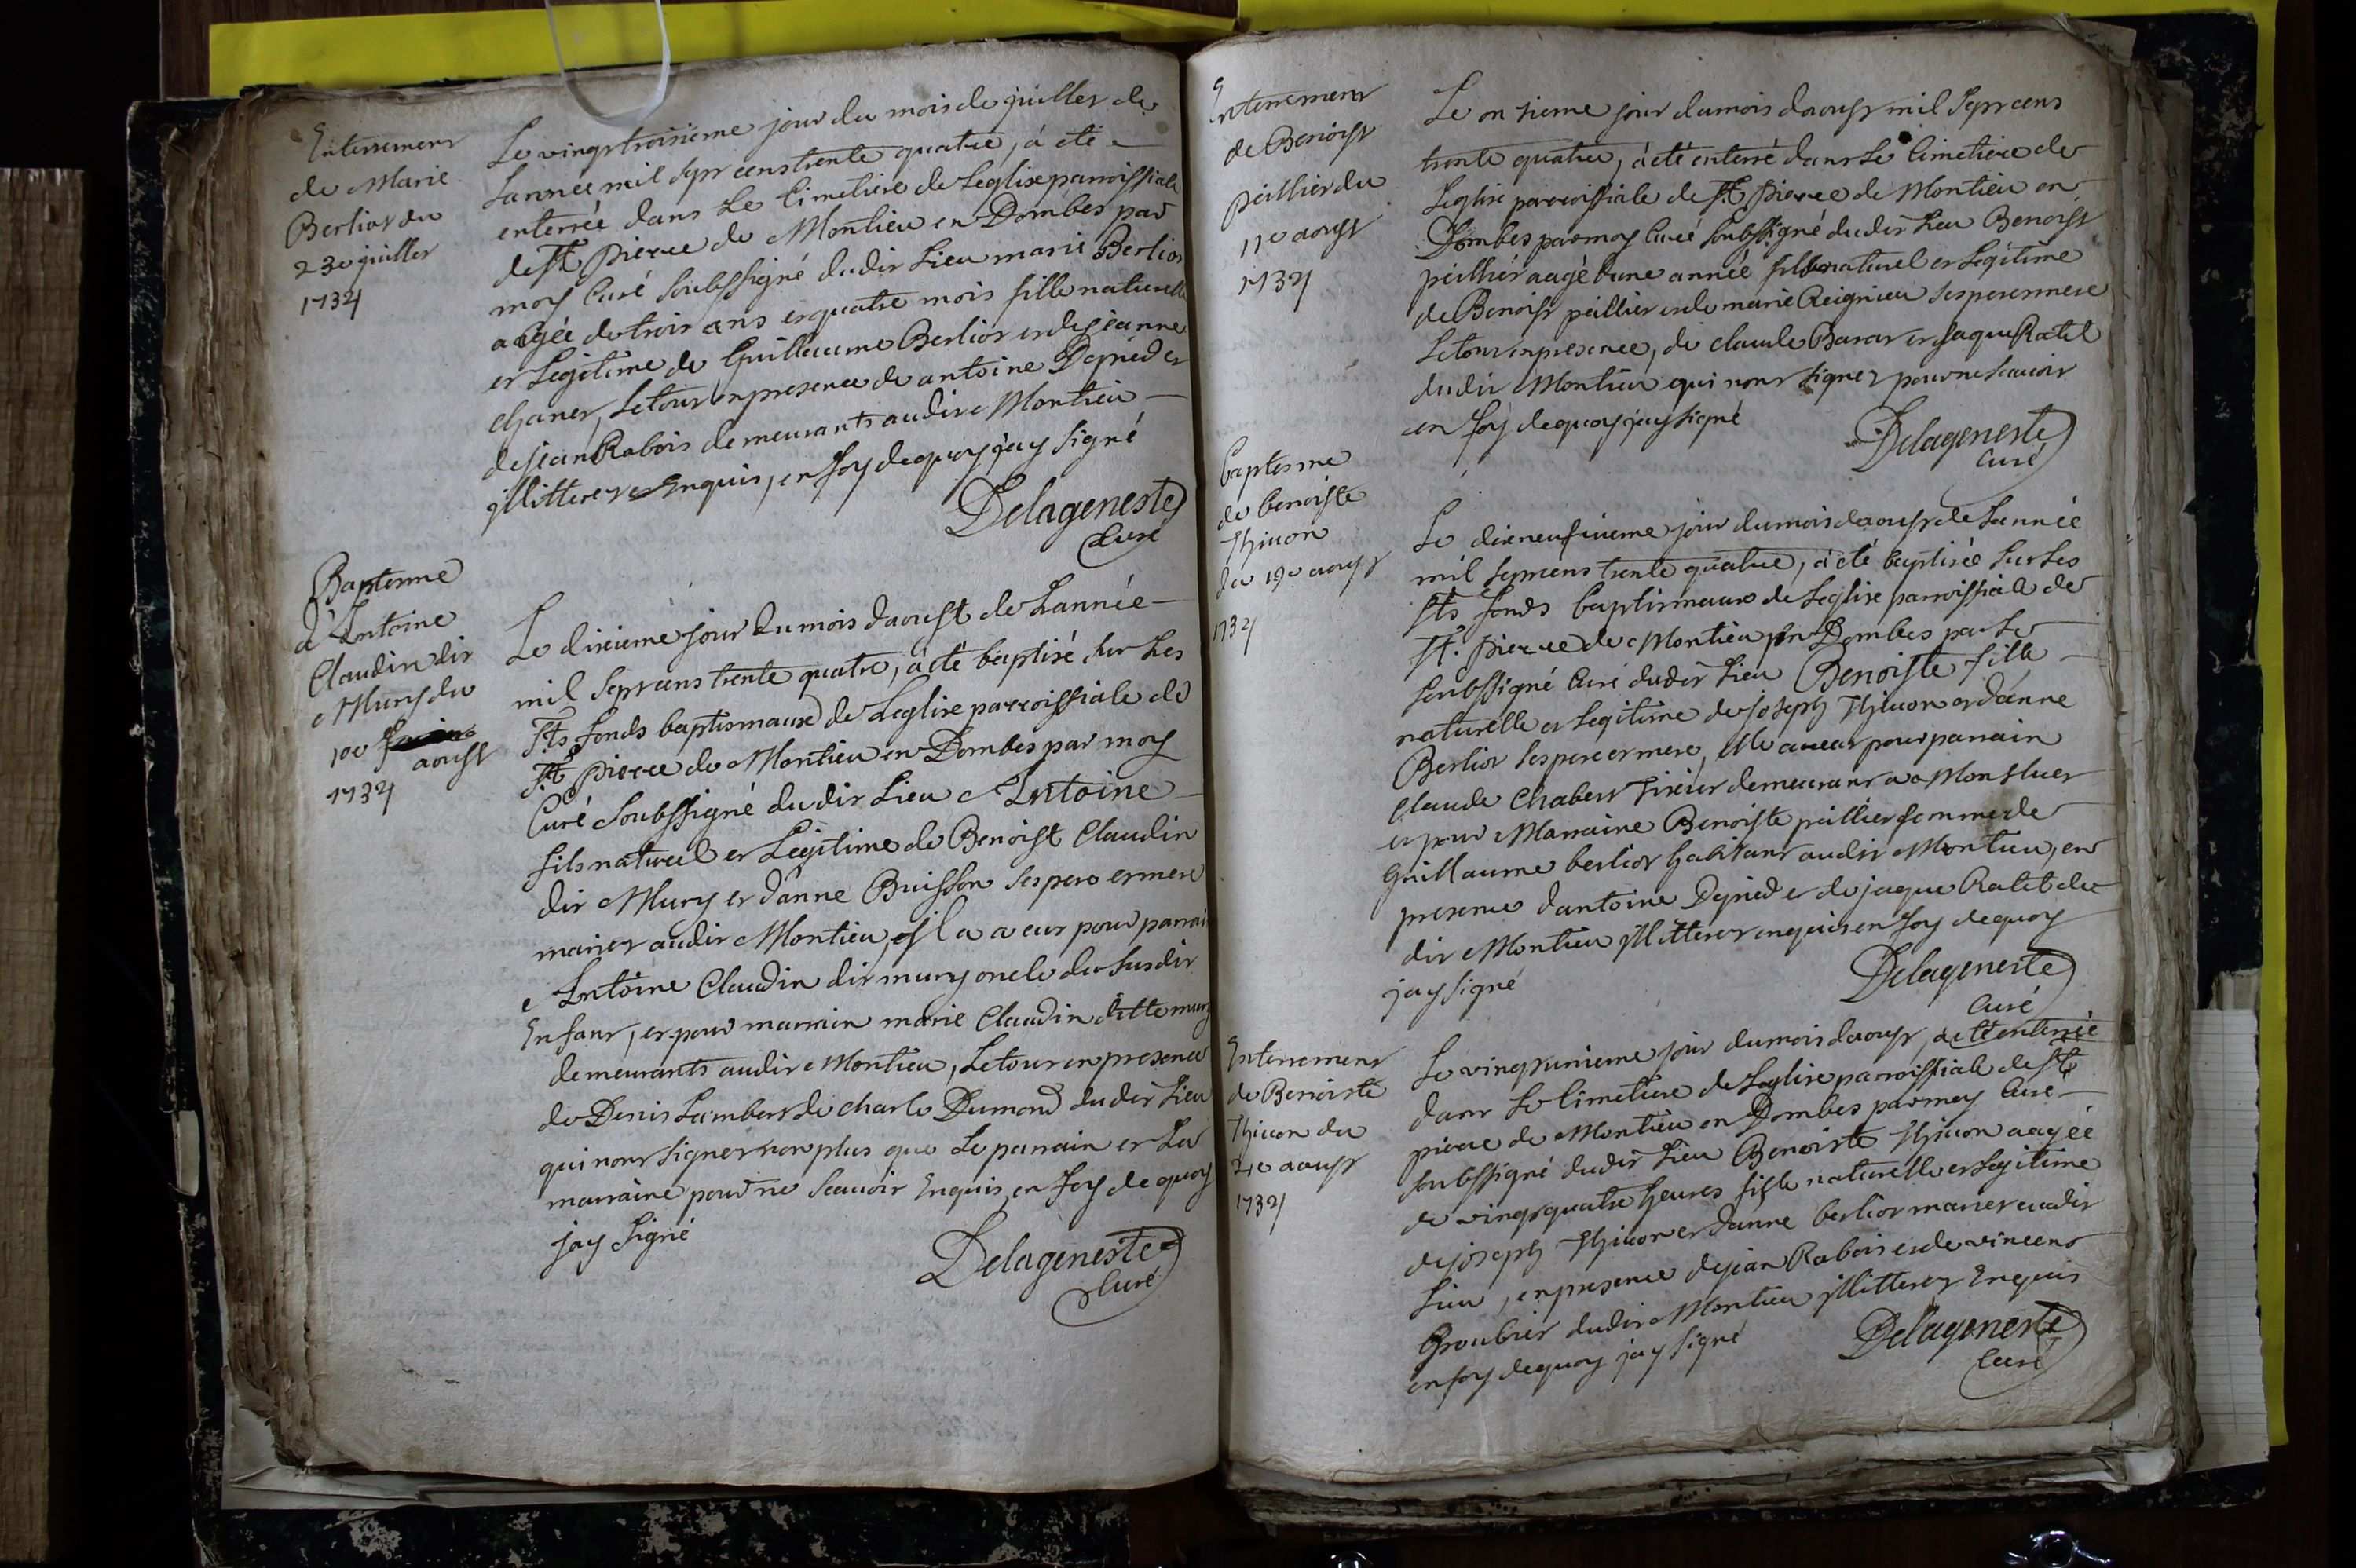 Enterrement
de Marie
Berliot du
23e juillet
1734
Le vingt troisieme jour du mois de juillet de
Lannee mil sept cens trente quatre, à eté
enterrée dans Le Cimetiere de Leglise parroissiale
de St. Pierre de Montieu en Dombes par
moy Curé Soubssigné dudit Lieu marie Berliot
aagée de trois ans et quatre mois fille naturelle
et Legitime de Guillaume Berliot et de jeanne
chanet, Le tout en presence de antoine Depried et
de jean Rabois demeurants audit Montieu
illitterez Enquis, en foy dequoy jay Signé
Delageneste
Curé
Baptesme
d'Antoine
Claudin dit
Mury du
10e
aoust
1734
Le dixieme jour du mois daoust de Lannée
mil Sept cens trente quatre, à eté baptisé sur Les
Sts fonds baptismaux de Leglise parroissiale de
St. Pierre de Montieu en Dombes par moy
Curé Soubssigné dudit Lieu Antoine
fils naturel et Legitime de Benoist Claudin
dit Mury et dánne Buisson Ses pere et mere
mariez audit Montieu, il a eut pour parrain
Antoine Claudin dit mury oncle du Susdit
Enfant, et pour marrain marie Claudin ditte mury
demeurants audit Montieu, Le tout en presence
de Denis Lambert de charle Dumond dudit Lieu
qui nont Signez non plus que Le parrain et La
marraine pour ne Scavoir Enquis, en foy de quoy
jay Signé
Delageneste
Curé
Enterrement
de Benoist
peillier du
11e aoust
1734
Le onzieme jour du mois daoust mil Sept cens
trente quatre, à eté enterré dans Le Cimetiere de
Leglise parroissiale de St. Pierre de Montieu en
Dombes par moy Curé Soubssigné dudit Lieu Benoist
peillier aagé dune année fils naturel et Legitime
de Benoist peillier et de marie Reignieu Ses pere et mere
Le tout en presence, de claude Barat et Jaque Ratel
dudit Montieu qui nont Signez pour ne Scavoir
en foy dequoy jay Signé
Delageneste
Curé
baptesme
de benoiste
Thivon
du 19e aoust
1734
Le dixneufvieme jour du mois daoust de Lannée
mil Septcens trente quatre, à eté baptisée Sur Les
Sts fonds baptismaux de Leglise parroissiale de
St. Pierre de Montieu en Dombes par Le
Soubssigné Curé dudit Lieu Benoiste fille
naturelle et Legitime de joseph Thivon et dánne
Berliot Ses pere et mere, elle a eut pour parrain
Claude Chabert Tixier demeurant a Montluet
et pour Marraine Benoiste peillier femme de
Guillaume berliot habitant audit Montieu, en
presence dantoine Depried et de jaque Ratel du
dit Montieu illitterez enquis en foy dequoy
jay Signé
Delageneste
Curé
Enterrement
de Benoiste
Thivon du
21e aoust
1734
Le vingt unieme jour du mois daoust, à eté enterrée
dans Le Cimetiere de Leglise parroissiale de St.
pierre de Montieu en Dombes par moy Curé
Soubssigné dudit Lieu Benoiste Thivon aagée
de vingt quatre heures fille naturelle et Legitime
de joseph Thivon et dánne berliot mariez audit
Lieu, en presence de jean Rabois et de vincent
Groubier dudit Montieu illitterez Enquis
en foy dequoy jay Signé
Delageneste
Curé